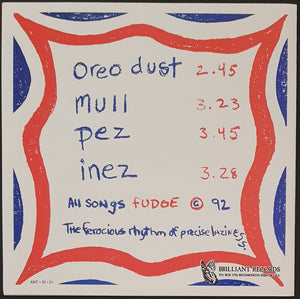 Oreo dust 2.45
Mull 3.23
pez 3.45
inez 3.28
All songs FUDGE © 92
The ferocious rhythm of precise laziness.
BRILLIANT RECORDS